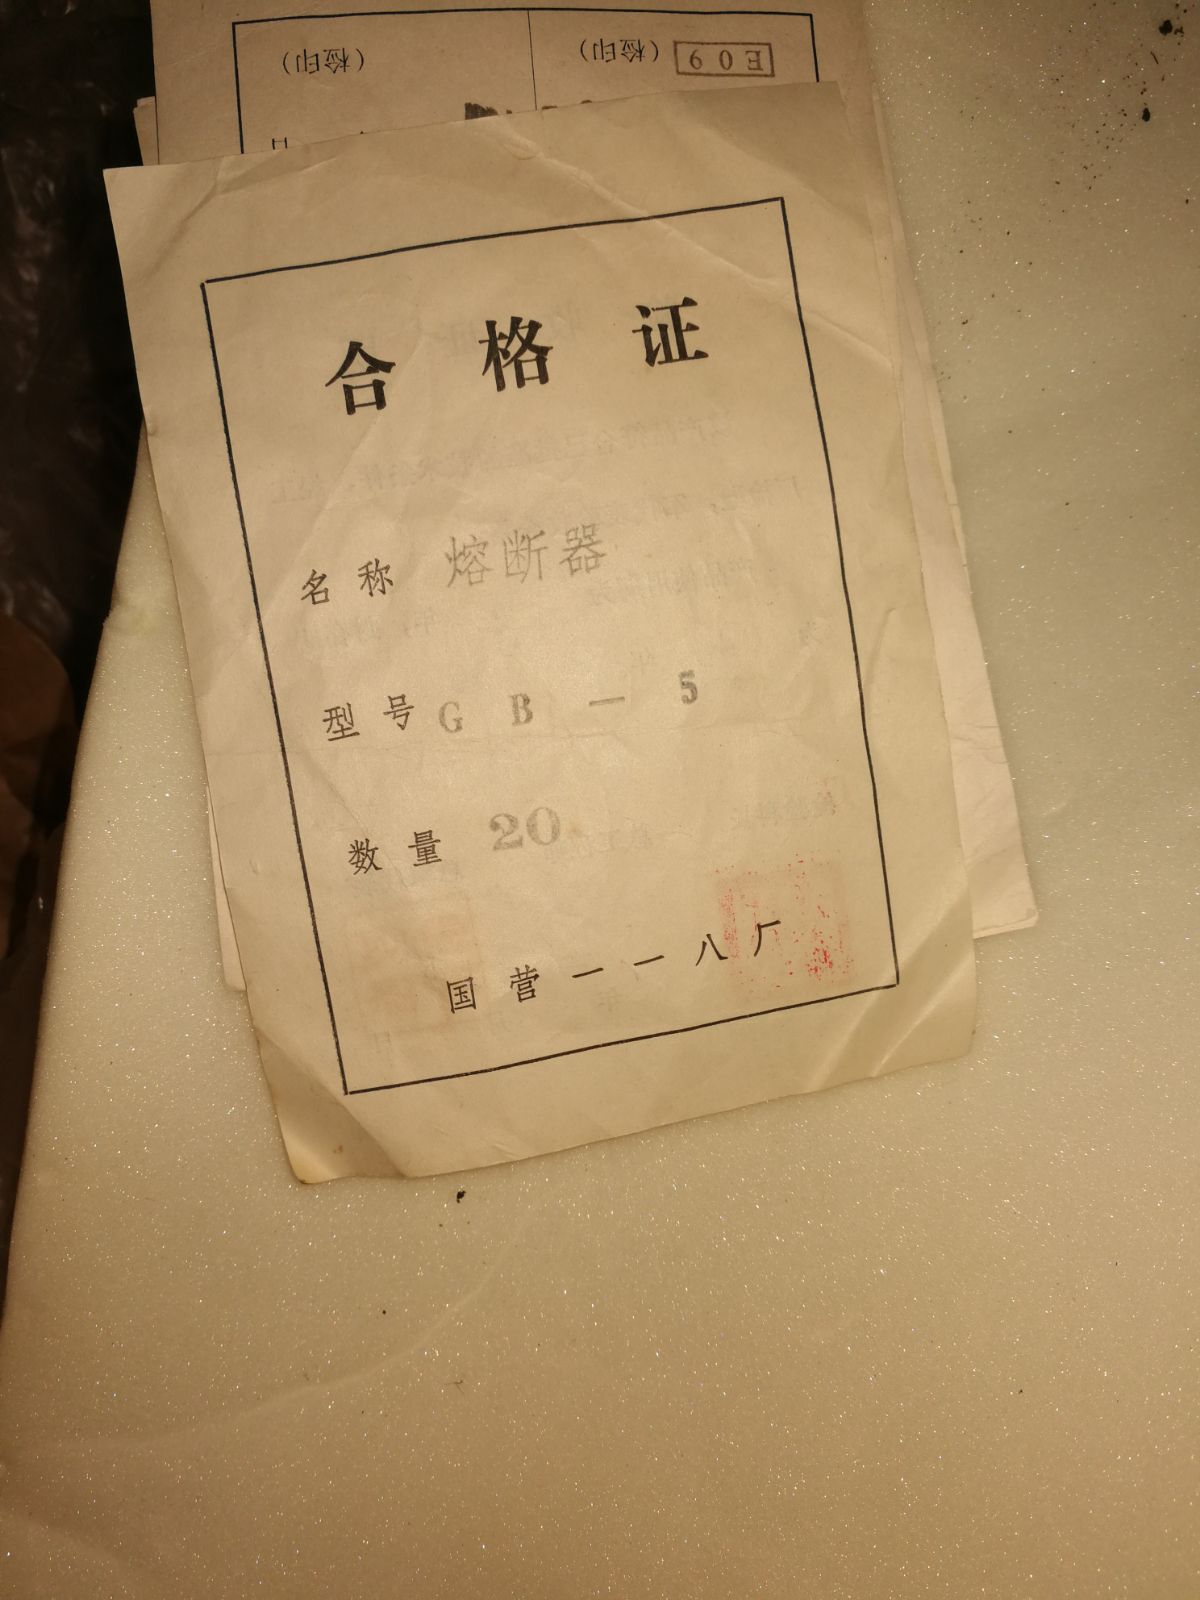 （检印）
（检印） E09
日
合格证
名称 熔断器
型号 GB—5
数量 20
国营一一八厂